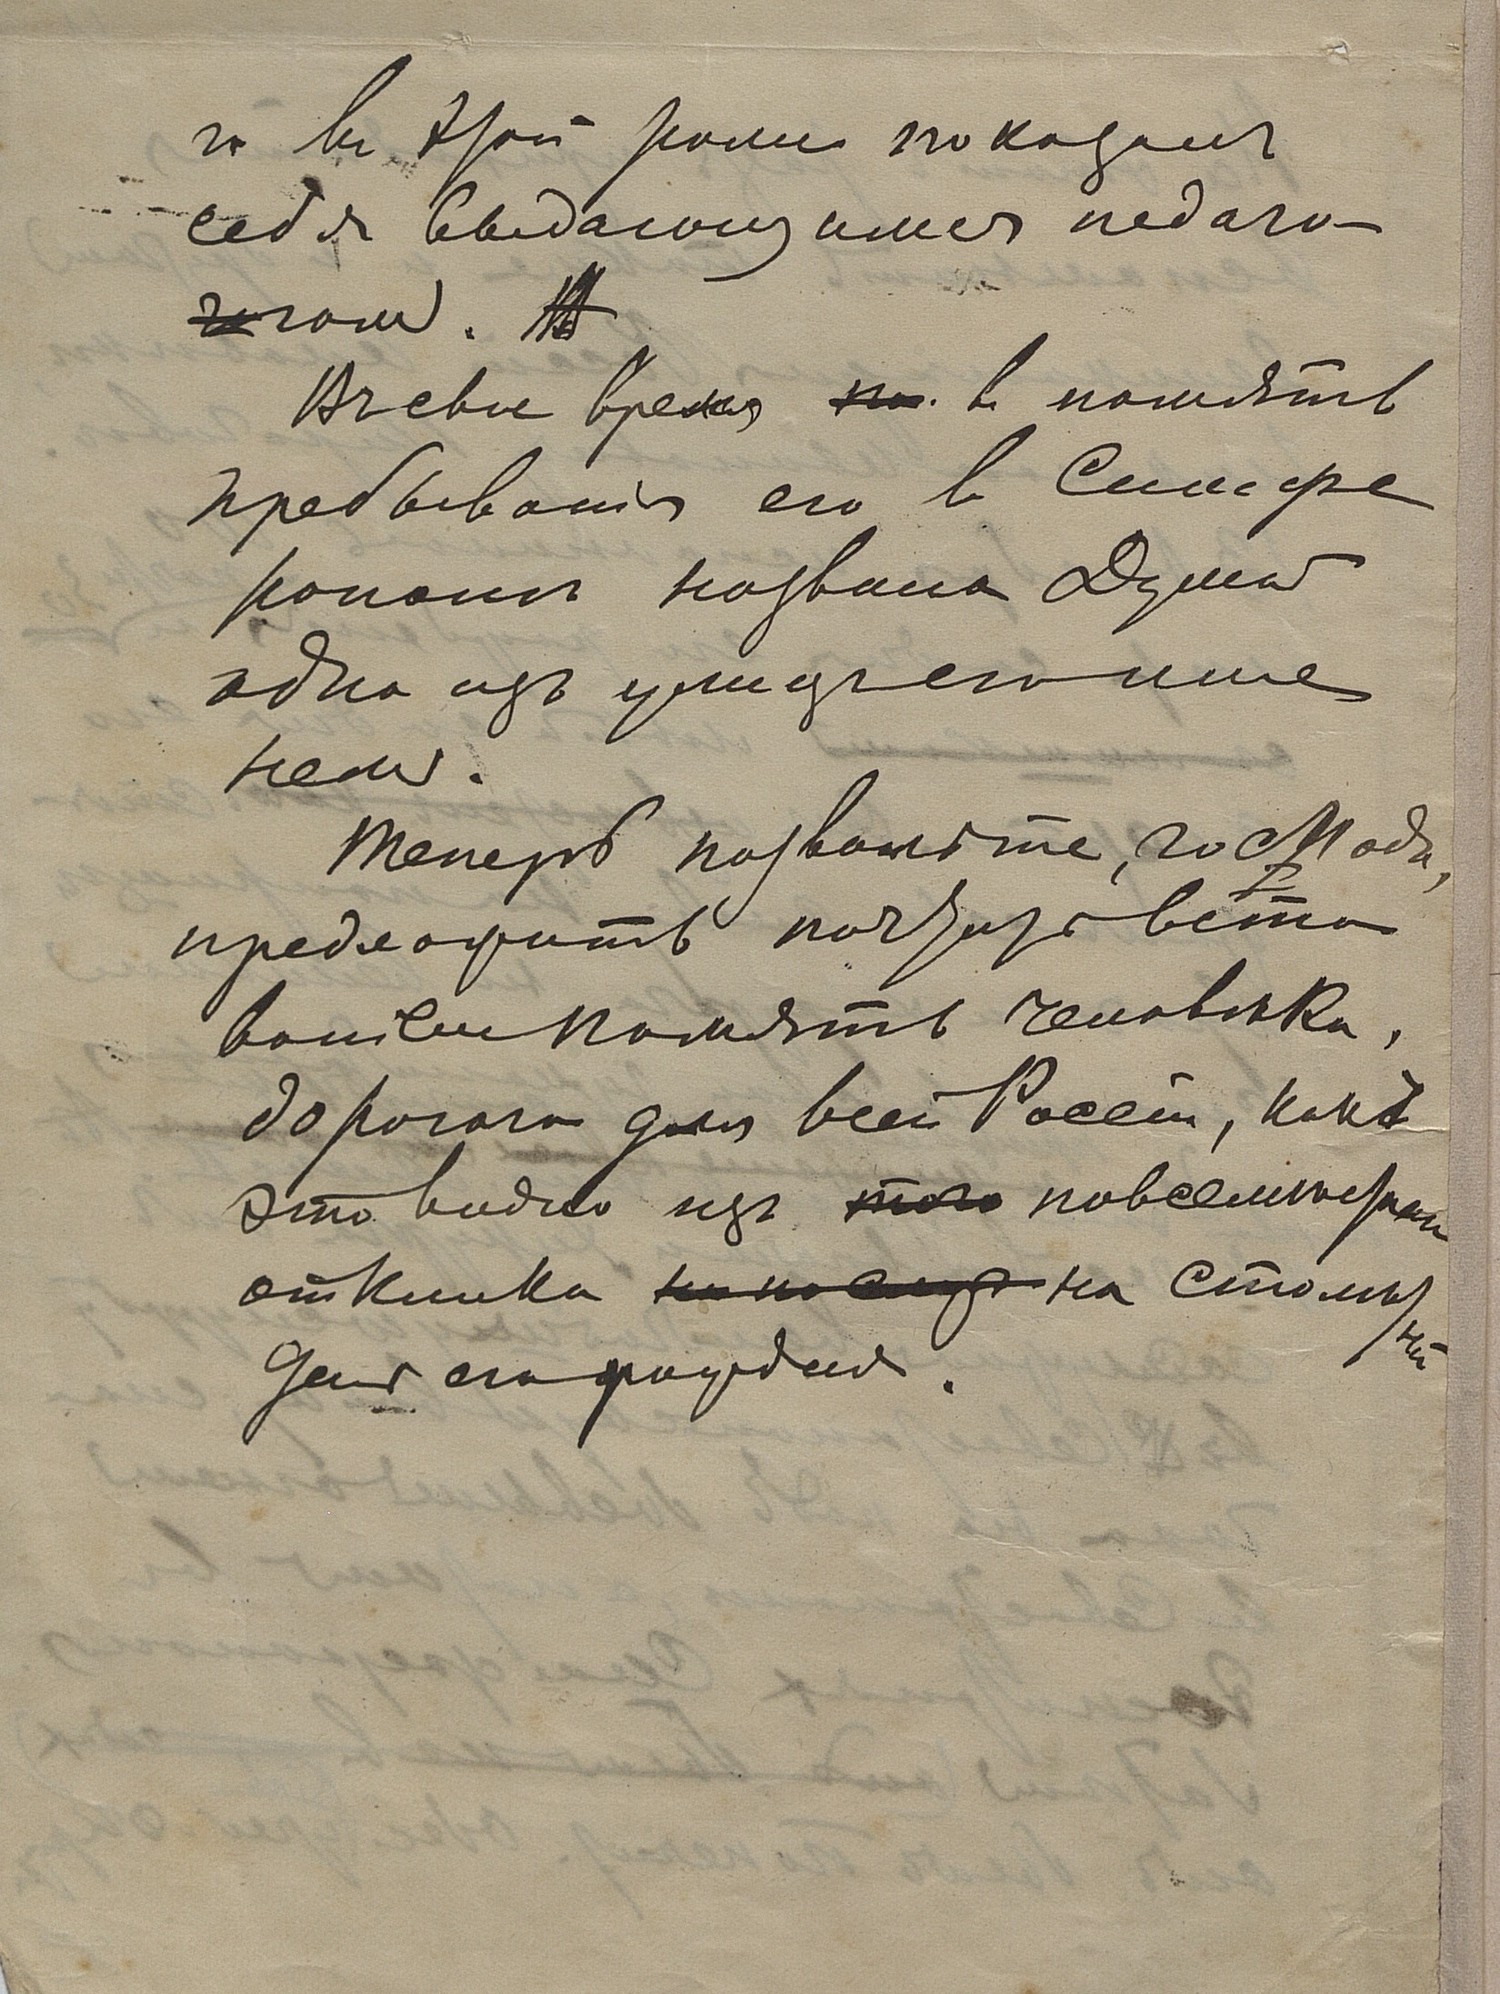 и въ этой роли показалъ
себя выдающимся педаго-
гомъ.
Въ свое время въ память
пребыванія его въ Симфе
рополѣ названа Думой
одна изъ улицъ его име
немъ.
Теперь позвольте, господа,
предложить почтить вста
ваніемъ память человѣка,
дорогого для всей Россіи, какъ
это видно изъ того повсемѣстнаго
отклика на столѣт
ній
день его рожденія.